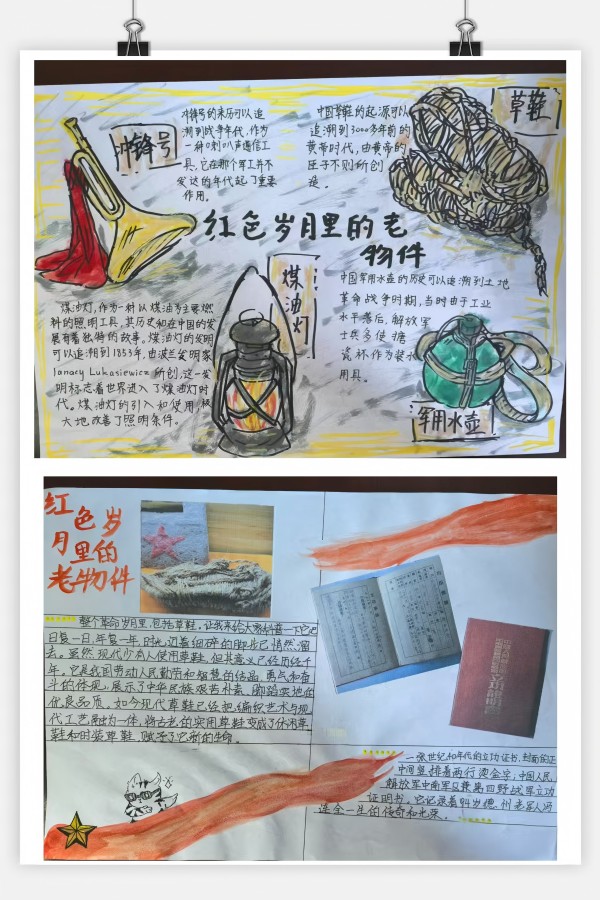 冲锋号
冲锋号的来历可以追
溯到战争年代,作为
一种喇叭声通信工
具,它在那个军工并不
发达的年代起了重要
作用。
中国草鞋的起源可以
追溯到3000多年前的
黄帝时代,由黄帝的
臣子不则所创
造。
草鞋
红色岁月里的老
物件
煤油灯,作为一种以煤油为主要燃
料的照明工具,其历史和在中国的发
展有着独特的故事。煤油灯的发明
可以追溯到1853年,由波兰发明家
Ianacy Lukasiewicz所创,这一发
明标志着世界进入了煤油灯时
代。煤油灯的引入和使用,极
大地改善了照明条件。
煤油灯
中国军用水壶的历史可以追溯到土地
革命战争时期,当时由于工业
水平落后,解放军
士兵多使搪
瓷杯作为装水
用具。
军用水壶
红色岁
月里的
老物件
整个革命岁月里,包括草鞋,让我来给大家科普一下它吧
日复一日,年复一年,时光迈着细碎的脚步已悄然溜
去。虽然现代少有人使用草鞋,但其意义已经历经千
年。它是我国劳动人民勤劳和智慧的结晶,勇气和奋
斗的体现,展示了中华民族艰苦朴素、脚踏实地的
优良品质。如今现代草鞋已经把编织艺术与现
代工艺融为一体,将古老的实用草鞋变成了休闲草
鞋和时装草鞋,赋予了它新的生命。
立功证明书
一张世纪40年代的立功证书,封面的正
中间竖排着两行烫金字,中国人民
解放军中南军区兼第四野战军立功
证明书。它记录着94岁德州老军人冯
连全一生的传奇和光荣。